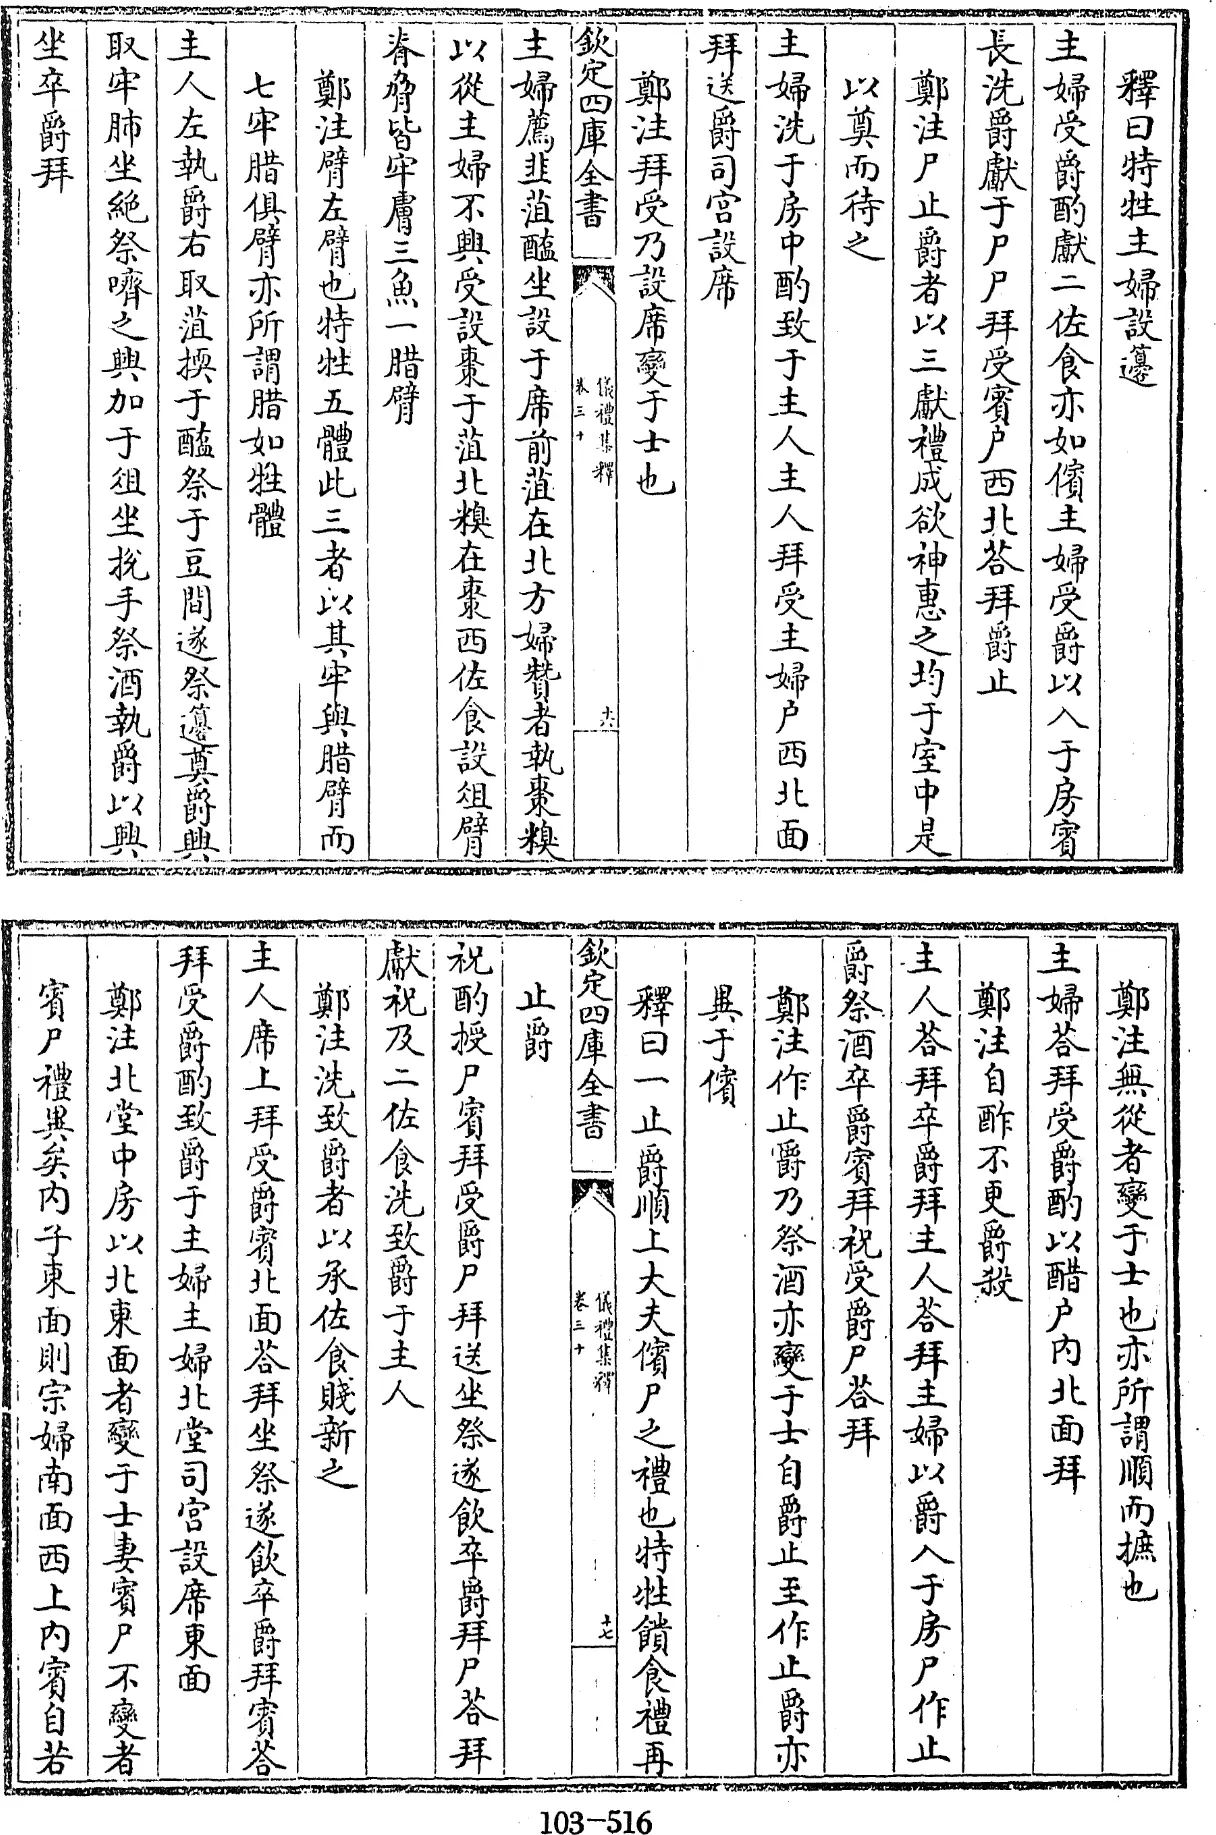 釋曰特牲主婦設籩
主婦受爵酌獻二佐食亦如儐主婦受爵以入于房賓
長洗爵獻于尸尸拜受賓戶西北荅拜爵止
鄭注尸止爵者以三獻禮成欲神惠之均于室中是
以奠而待之
主婦洗于房中酌致于主人主人拜受主婦戶西北面
拜送爵司宮設席
鄭注拜受乃設席變于士也
欽定四庫全書
儀禮集釋
卷三十
十六
主婦薦韭菹醢坐設于席前菹在北方婦贊者執棗糗
以從主婦不興受設棗于菹北糗在棗西佐食設俎臂
脊脅皆牢膚三魚一腊臂
鄭注臂左臂也特牲五體此三者以其牢與腊臂而
七牢腊俱臂亦所謂腊如牲體
主人左執爵右取菹㨎于醢祭于豆間遂祭籩奠爵興
取牢肺坐絶祭嚌之興加于俎坐挩手祭酒執爵以興
坐卒爵拜
鄭注無從者變于士也亦所謂順而摭也
主婦荅拜受爵酌以醋戶內北面拜
鄭注自酢不更爵殺
主人荅拜卒爵拜主人荅拜主婦以爵入于房尸作止
爵祭酒卒爵賓拜祝受爵尸荅拜
鄭注作止爵乃祭酒亦變于士自爵止至作止爵亦
異于儐
釋曰一止爵順上大夫儐尸之禮也特牲饋食禮再
欽定四庫全書
儀禮集釋
卷三十
十七
止爵
祝酌授尸賓拜受爵尸拜送坐祭遂飲卒爵拜尸荅拜
獻祝及二佐食洗致爵于主人
鄭注洗致爵者以承佐食賤新之
主人席上拜受爵賓北面荅拜坐祭遂飲卒爵拜賓荅
拜受爵酌致爵于主婦主婦北堂司宮設席東面
鄭注北堂中房以北東面者變于士妻賓尸不變者
賓尸禮異矣內子東面則宗婦南面西上內賓自若
103-516